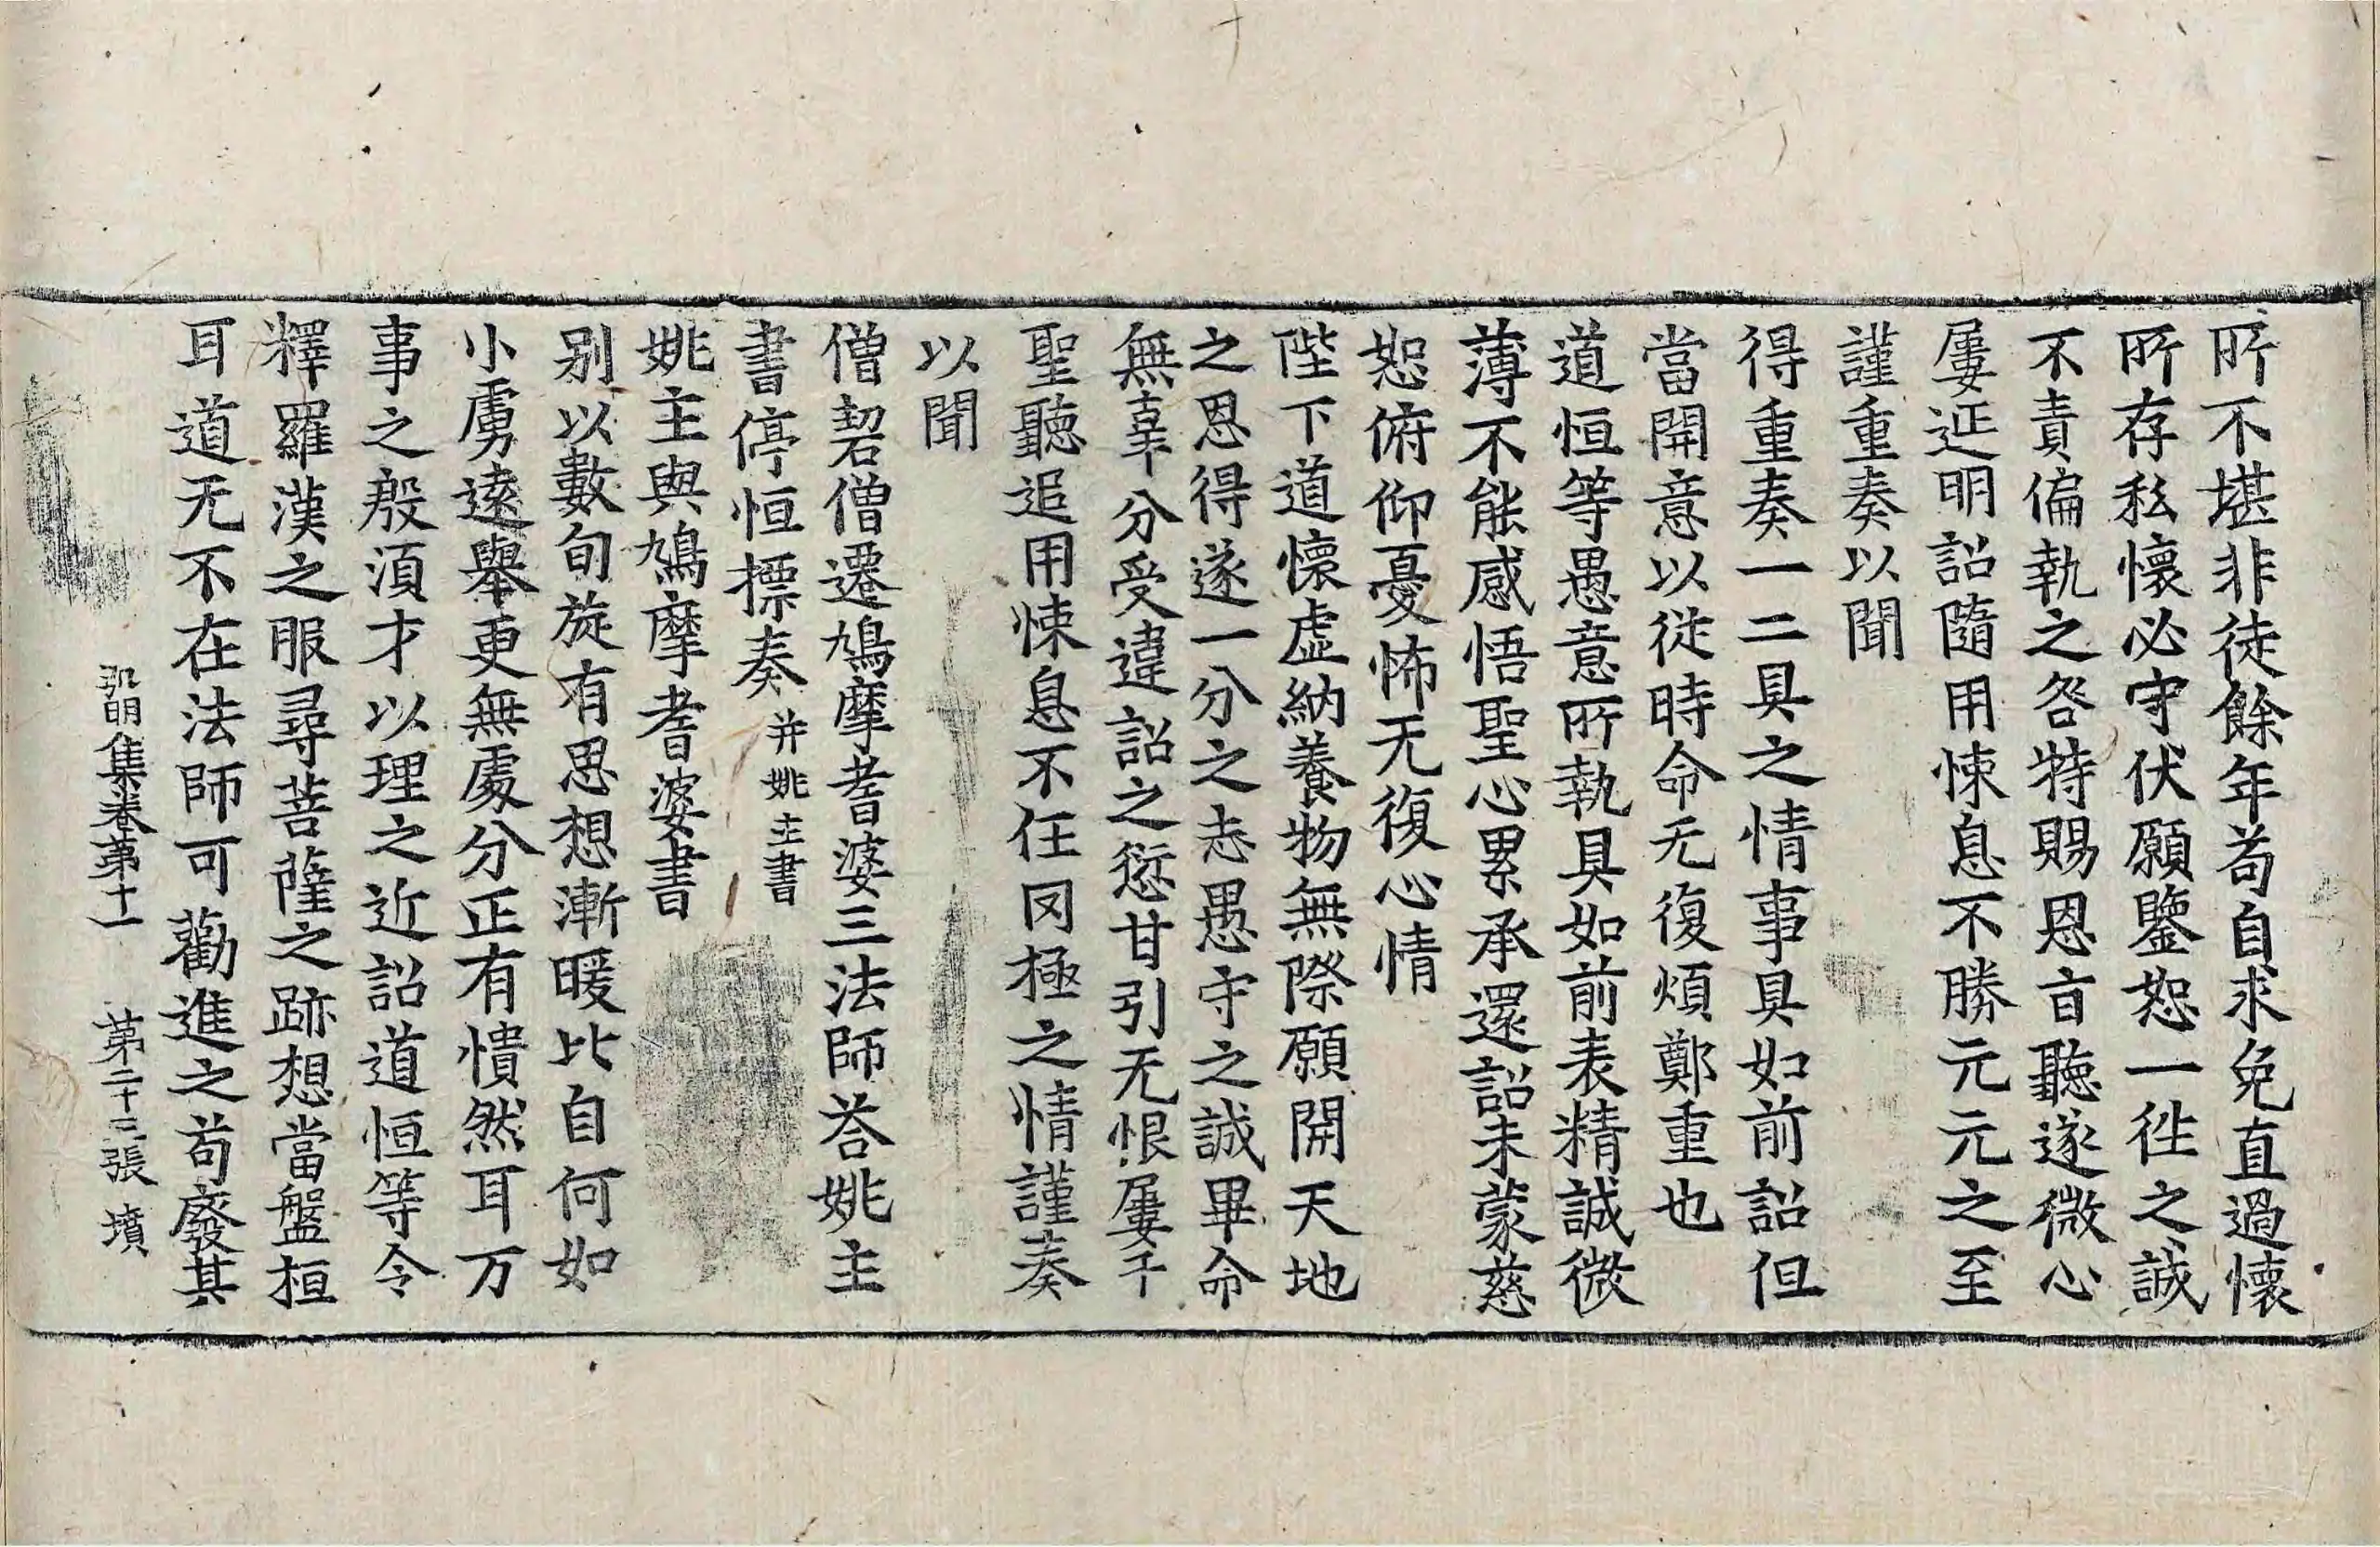 所不堪非徒餘年苟自求免直過懷
所存私懷必守伏願鑒恕一徃之誠
不責偏執之咎特賜恩旨聽遂微心
屢延明詔隨用悚息不勝元元之至
謹重奏以聞
得重奏一二具之情事具如前詔但
當開意以從時命无復煩鄭重也
道恒等愚意所執具如前表精誠微
薄不能感悟聖心累承還詔未蒙慈
恕俯仰憂怖无復心情
陛下道懷虛納養物無際願開天地
之恩得遂一分之志愚守之誠畢命
無辜分受違詔之愆甘引无恨屢干
聖聽追用悚息不任罔極之情謹奏
以聞
僧䂮僧遷鳩摩耆婆三法師荅姚主
書停恒摽奏并姚主書
姚主與鳩摩耆婆書
别以數旬旋有思想漸暖比自何如
小虜遠舉更無處分正有憒然耳万
事之殷湏才以理之近詔道恒等令
釋羅漢之服尋菩薩之跡想當盤桓
耳道无不在法師可勸進之苟廢其
弘明集卷第十一 第二十三張 墳